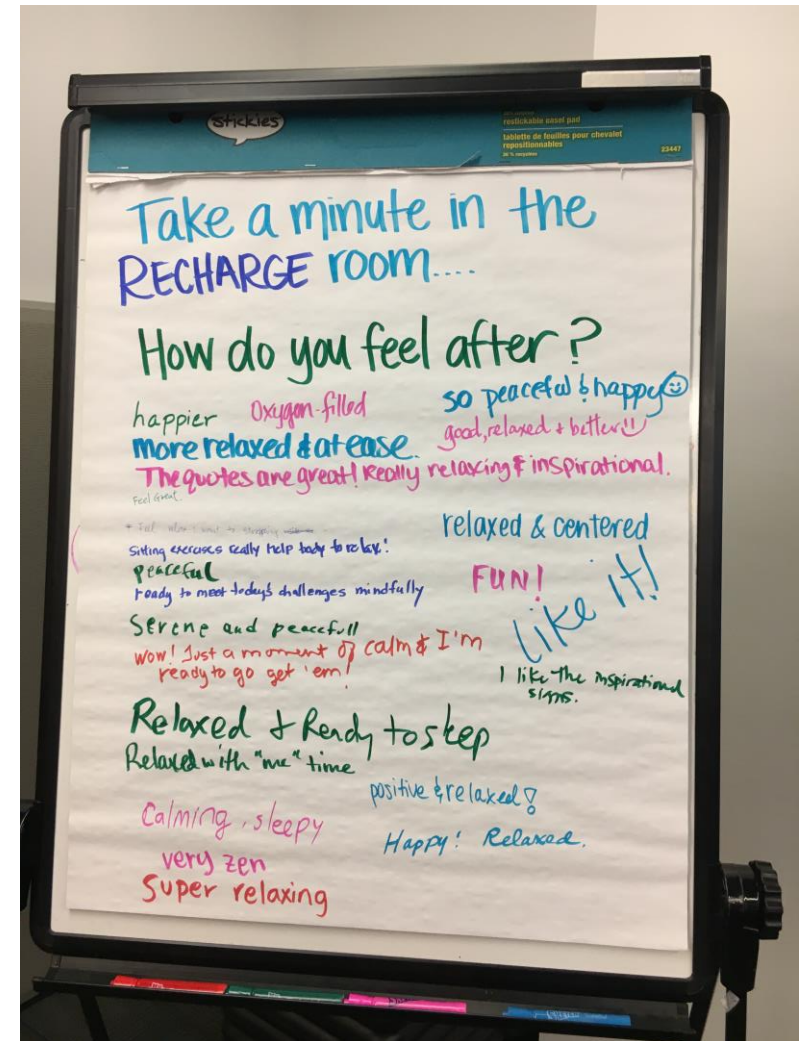 stickies
restickable easel pad
tablette de feuilles pour chevalet
repositionnables
23447
Take a minute in the
RECHARGE room....
How do you feel after?
happier
Oxygen-filled
so peaceful & happy
more relaxed & at ease.
good, relaxed + better!
The quotes are great! Really relaxing & inspirational.
Feel Great.
relaxed & centered
Sitting exercises really help body to relax!
peaceful
FUN!
ready to meet today's challenges mindfully
Like it!
Serene and peacefull
wow! Just a moment of calm & I'm
ready to go get 'em!
I like the inspirational
signs.
Relaxed & Ready to step
Relaxed with "me" time
positive & relaxed!
Calming, sleepy
Happy! Relaxed.
very zen
Super relaxing